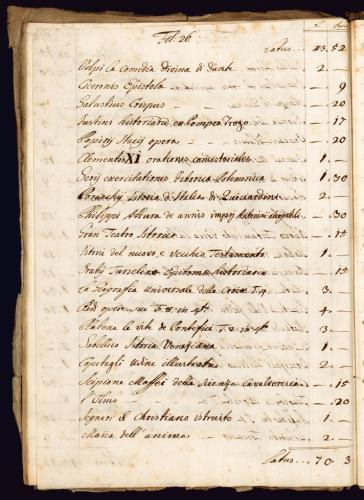 Fol 26
Latus ... 43.52
Volpi La Comedia Divina di Dante 2. —
Ciceronis Epistole — 9
Salustius Crispus — 20
Justinus historiarum ex Pompeo Trogo — 17
opera — 20
Clementis XI orationes consistoriales 1. —
exercitationes Retorica Polemnica 1. 30
Istoria d'Italia di Guicciardini 2. —
Philippi de annis imperij 1. 30
Gran Teatro Istorico — 15
del nuovo e Vecchio Testamento 1. —
Oratij Tursclino Epitomæ historiarum — 15
La Geografia universale della Croix T. 4 3. —
opere sue T. 8 in 4t. 4. —
Platena le vite de Pontefici T. 2 in 4t. 3. —
Sabellico Istoria Veneziana 1. —
Capodagli Udine illustrata 2. —
Scipione Maffei della Scienza Cavalleresca — . 15
L'Ulmo — . 20
Segneri il Christiano istruito 1. —
Mana dell'anima 2. —
Latus ... 70. 3